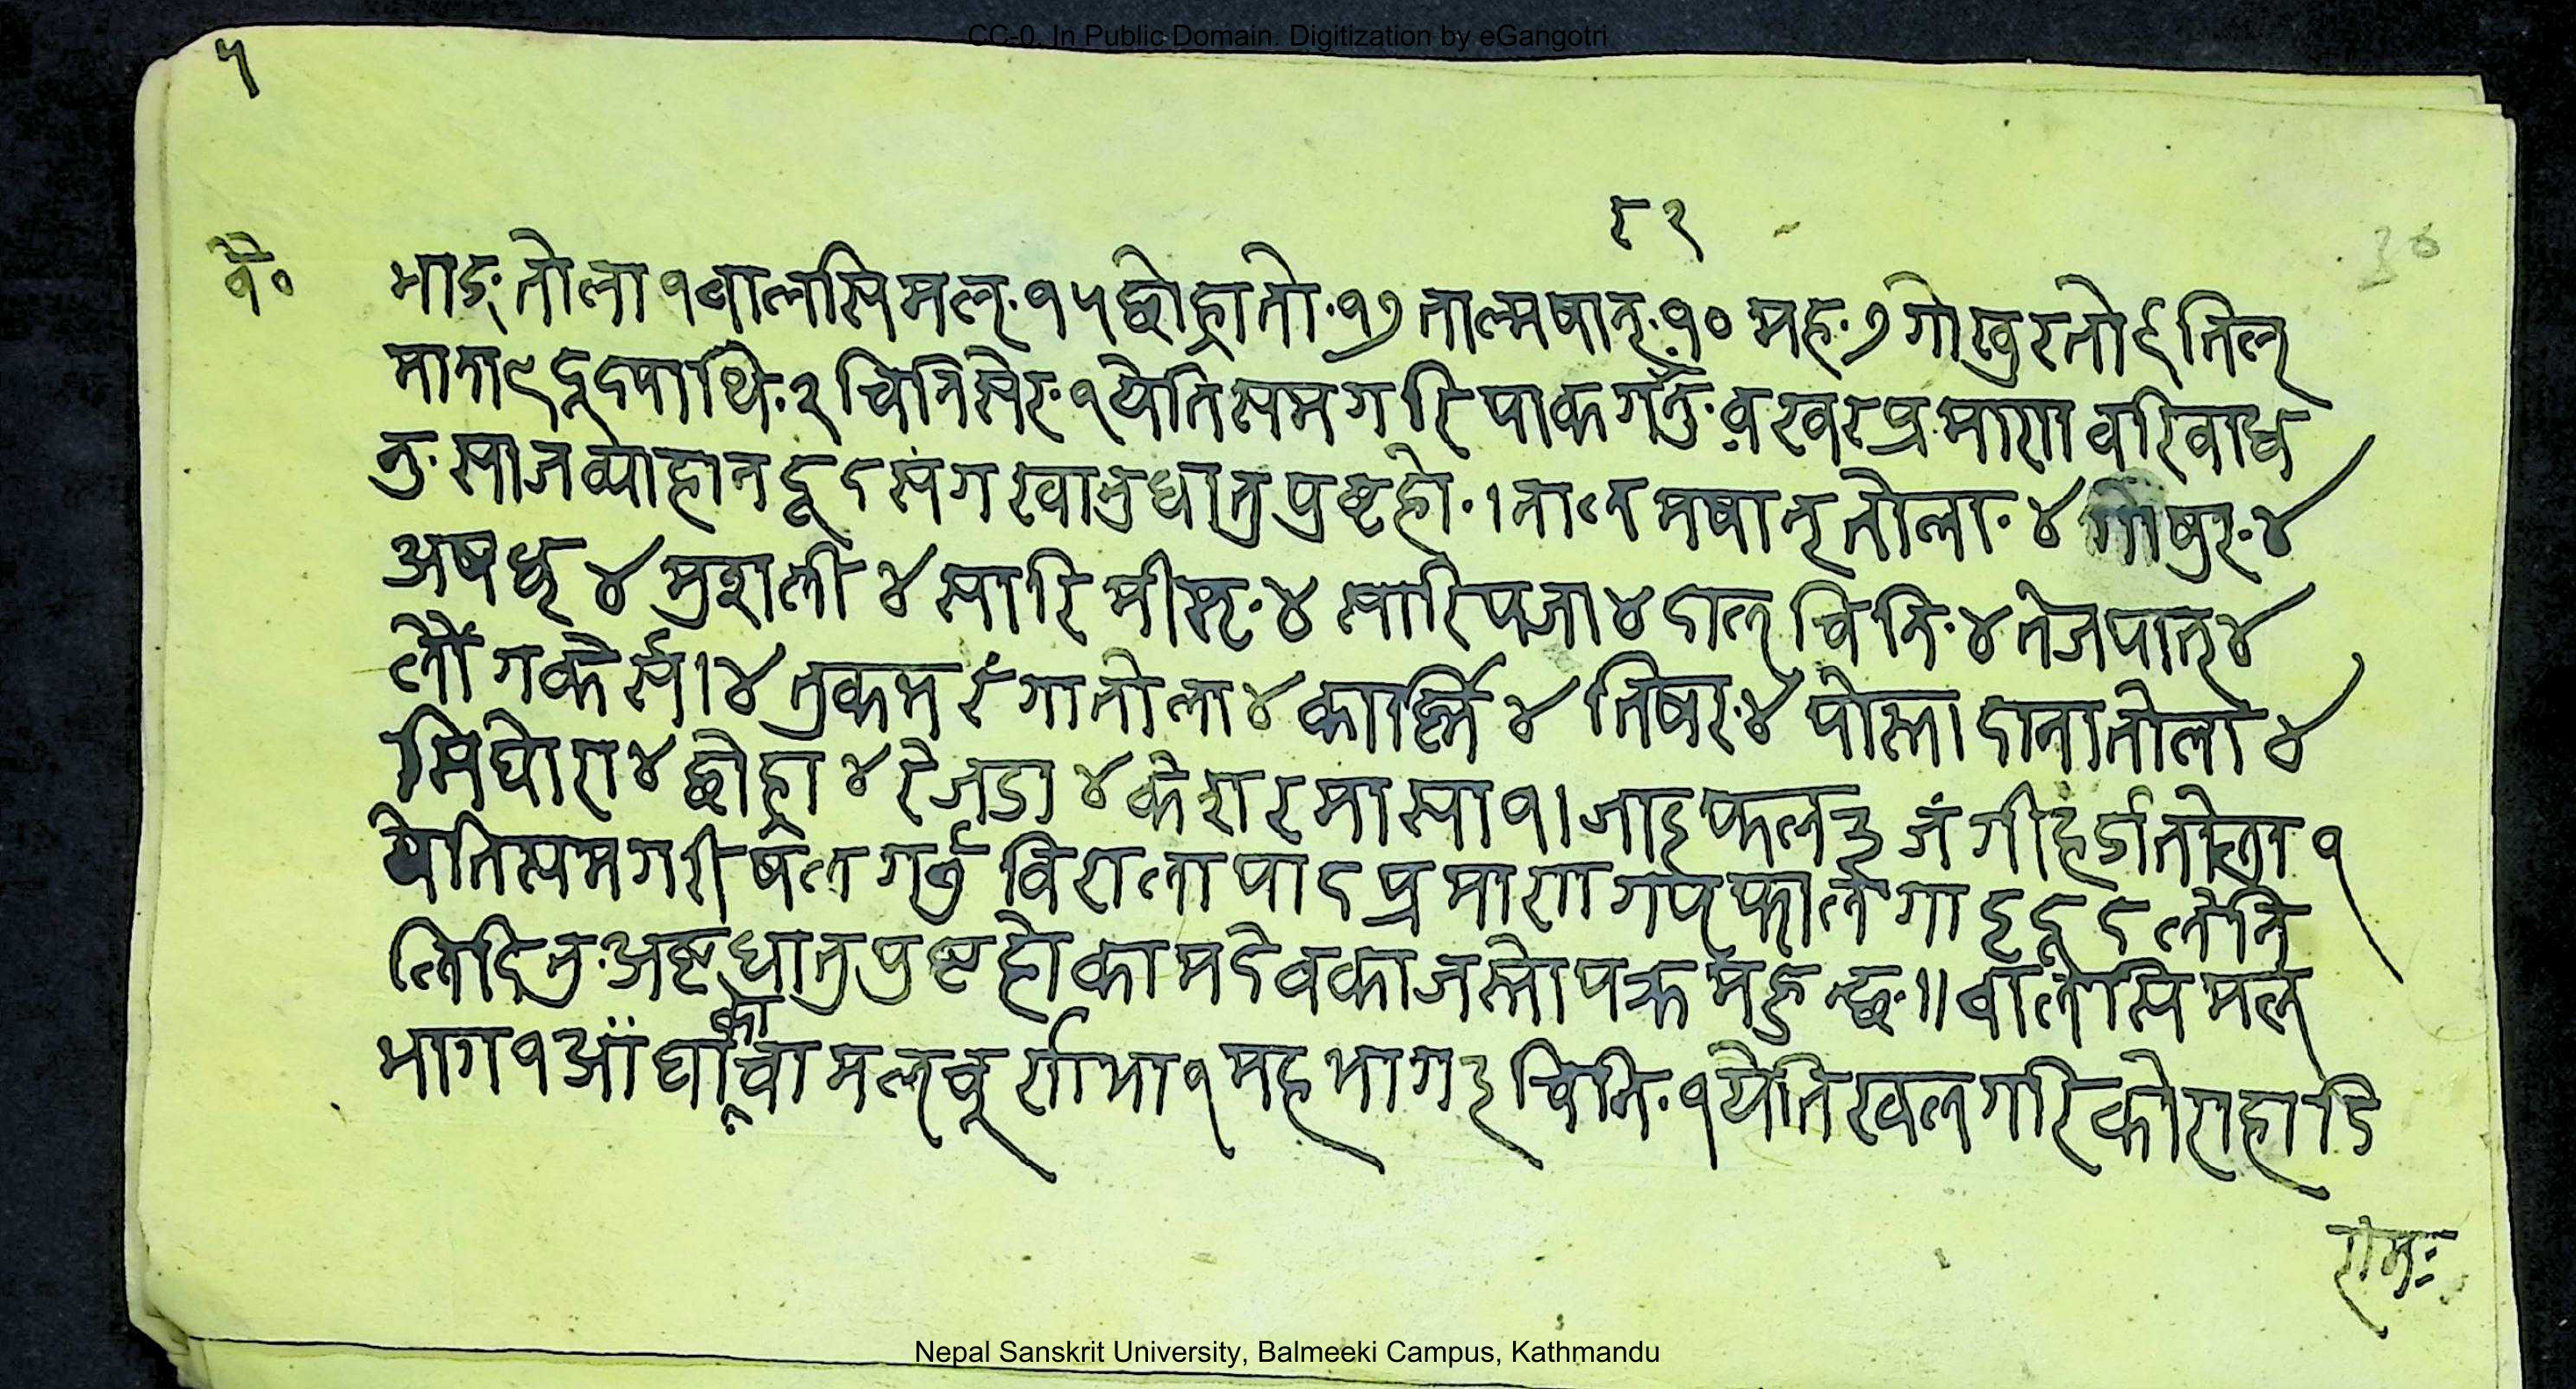 CC-0. In Public Domain. Digitization by eGangotri
५
८२
वै०
भाङ् तोला १ वालसिमल् १५ छोहातो १७ तालमषान् १० मह ७ गोखुरतो ६ तिल्
माना ९ दूदपाथि २ चिनिसेर १ येतिसमगरि पाकगर्नु वखर प्रमाण वरिवाध
नु साजव्याहान दूदसंग खानु धातुपुष्टहो । तालमषान् तोला ४ गोषुर ४
अषध् ४ मुशली ४ सारिमीस्र ४ सारिपञा ४ दालचिनि ४ तेजपात् ४
लौंग कैर्सा ४ तुकमरंगा तोला ४ कार्स्नि ४ तिषर ४ पोस्तादाना तोला ४
सिघोरा ४ छोह्रा ४ रेजडा ४ केशर मासा १ । जाइफल ३ जंगीहर्डा तोला १
येतिसमगरी षल गर्नु विरालापाद प्रमाण गर्प फार्ल गाइदूदलेनि
लिदिनु अष्टधातु पुष्टहो कामदेवका जस्तो पक्रमहुन्छ ॥ वालसिमल
भाग १ औंर्घाको वामल् चूर्ण भा १ मह भाग ३ चिनि १ येति खलगरि कोराहाडि
राम
Nepal Sanskrit University, Balmeeki Campus, Kathmandu